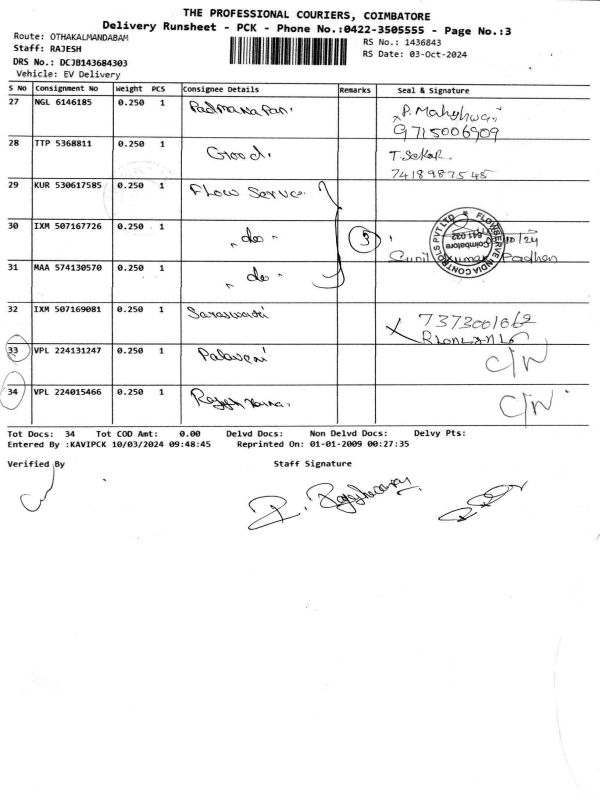 THE PROFESSIONAL COURIERS, COIMBATORE
Delivery Runsheet - PCK - Phone No.:0422-3505555 - Page No.:3
Route: OTHAKALMANDABAM
RS No.: 1436843
Staff: RAJESH
RS Date: 03-Oct-2024
DRS No.: DCJB143684303
Vehicle: EV Delivery
S No Consignment No Weight PCS Consignee Details Remarks Seal & Signature
27 NGL 6146185 0.250 1 P. Maheshwari
9715006909
28 TTP 5368811 0.250 1 Good. T. Sekar.
7418987545
29 KUR 530617585 0.250 1 Flow Serve
30 IXM 507167726 0.250 1 " do " 3
FLOWSERVE INDIA CONTROLS PVT LTD
Coimbatore
641 032
31 MAA 574130570 0.250 1 " do "
32 IXM 507169081 0.250 1 Saraswathi
33 VPL 224131247 0.250 1 Palaveni C/N
34 VPL 224015466 0.250 1 C/N
Tot Docs: 34 Tot COD Amt: 0.00 Delvd Docs: Non Delvd Docs: Delvy Pts:
Entered By :KAVIPCK 10/03/2024 09:48:45 Reprinted On: 01-01-2009 00:27:35
Verified By Staff Signature